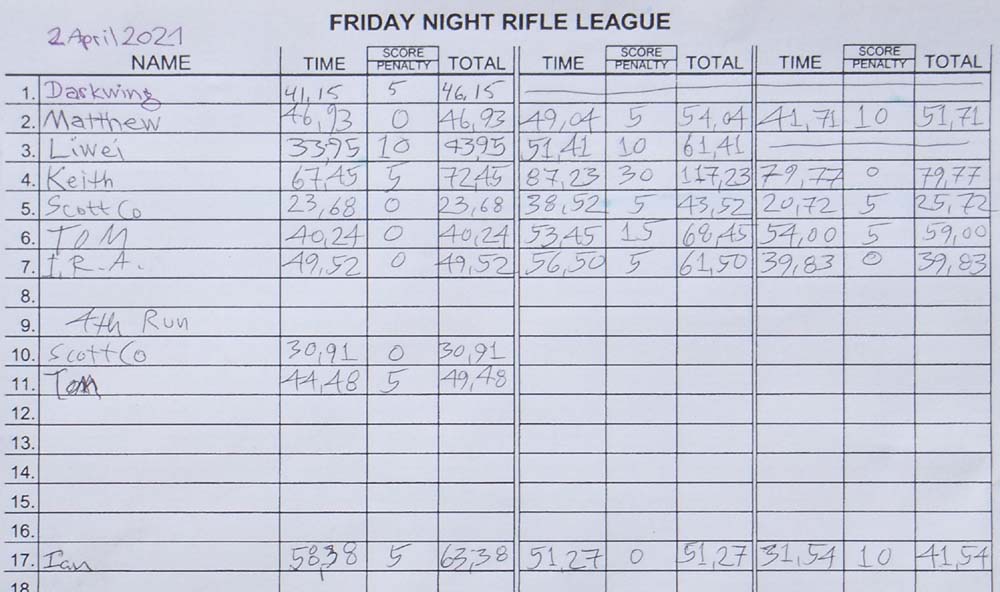 FRIDAY NIGHT RIFLE LEAGUE
2 April 2021
NAME TIME SCORE PENALTY TOTAL TIME SCORE PENALTY TOTAL TIME SCORE PENALTY TOTAL
1. Darkwing 41,15 5 46,15
2. Matthew 46,93 0 46,93 49,04 5 54,04 41,71 10 51,71
3. Liwei 33,95 10 43,95 51,41 10 61,41
4. Keith 67,45 5 72,45 87,23 30 117,23 79,77 0 79,77
5. Scott Co 23,68 0 23,68 38,52 5 43,52 20,72 5 25,72
6. TOM 40,24 0 40,24 53,45 15 68,45 54,00 5 59,00
7. I.R.A. 49,52 0 49,52 56,50 5 61,50 39,83 0 39,83
8.
9. 4th Run
10. Scott Co 30,91 0 30,91
11. Tom 44,48 5 49,48
12.
13.
14.
15.
16.
17. Ian 58,38 5 63,38 51,27 0 51,27 31,54 10 41,54
18